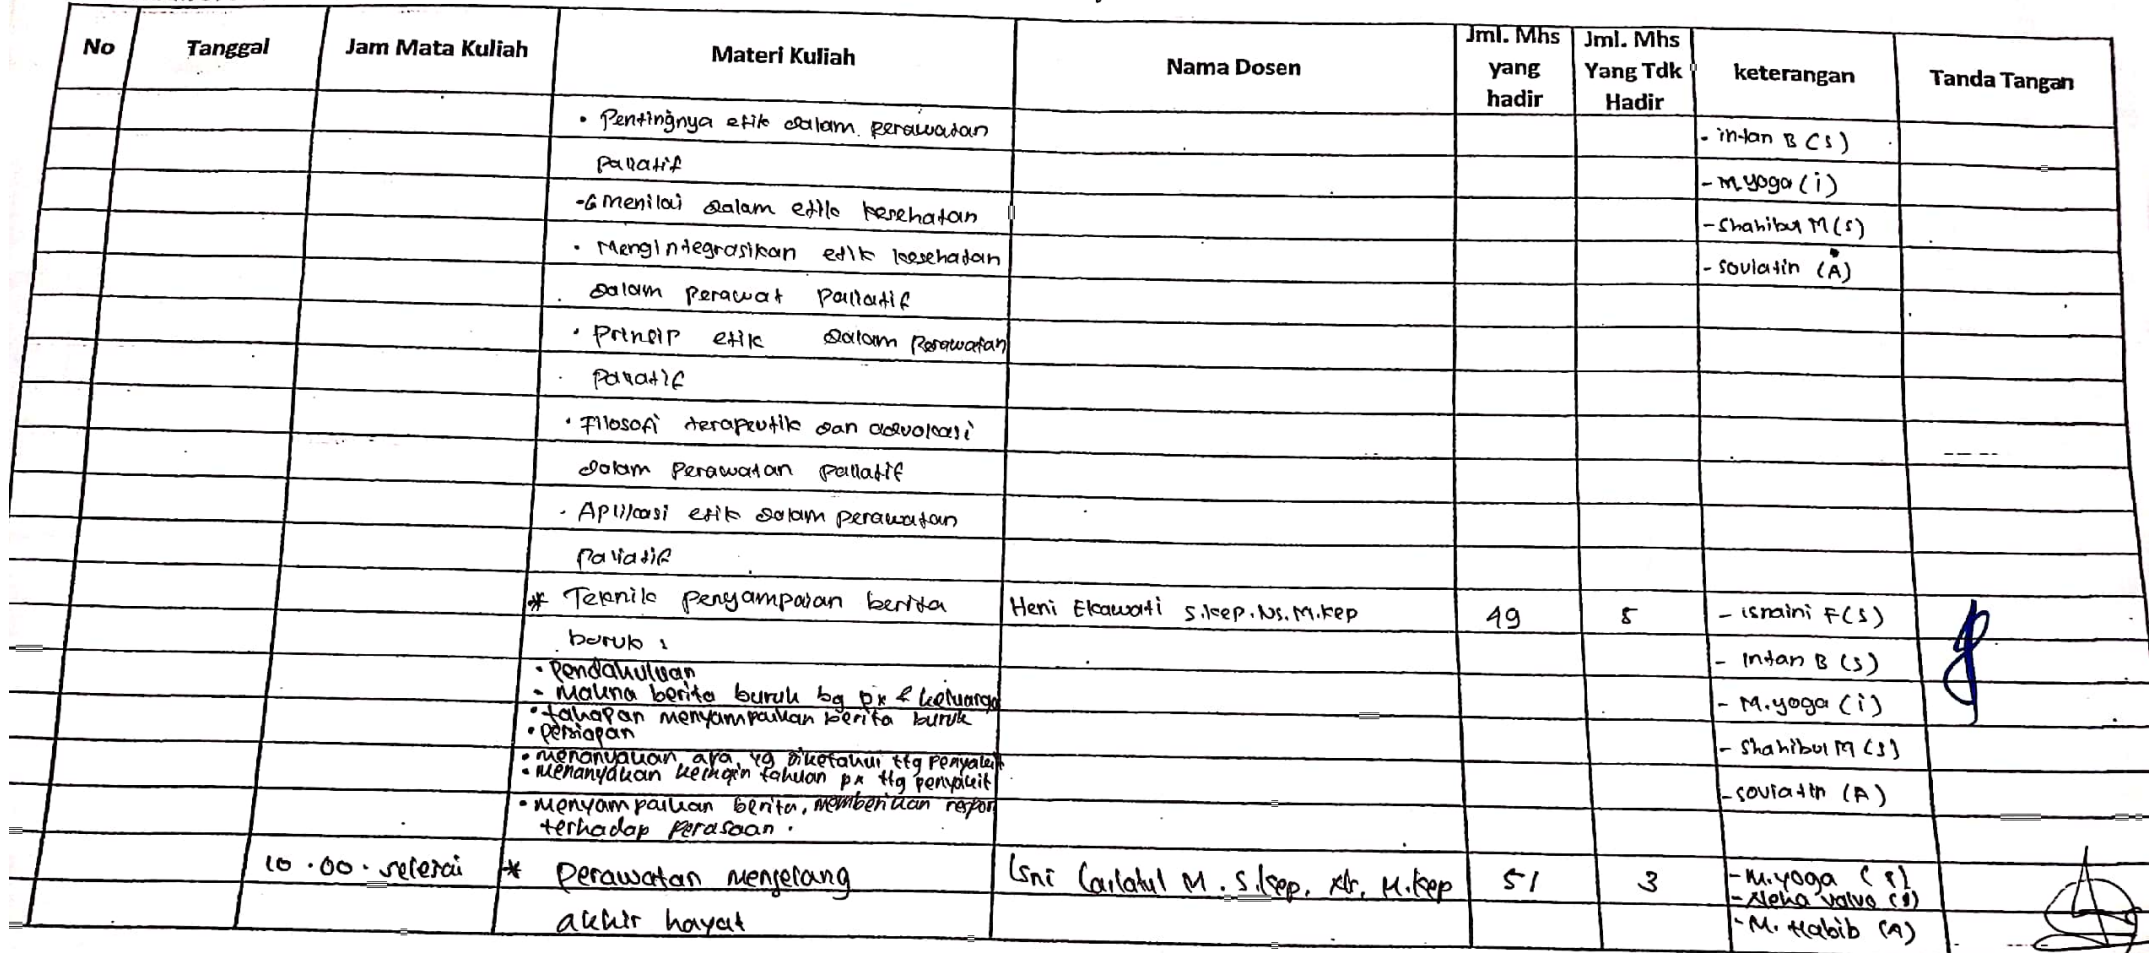 No Tanggal Jam Mata Kuliah Materi Kuliah Nama Dosen Jml. Mhs yang hadir Jml. Mhs Yang Tdk Hadir keterangan Tanda Tangan
• Pentingnya etik dalam perawatan - intan B (s)
paliatif - M yoga (i)
menilai dalam etik kesehatan - Shahibul M (s)
• Mengintegrasikan etik kesehatan - soviatin (A)
dalam perawat paliatif
• Prinsip etik dalam perawatan
paliatif
• Filosofi terapeutik dan advokasi
dalam perawatan paliatif
• Aplikasi etik dalam perawatan
paliatif
* Teknik penyampaian berita Heni Ekawati S.kep.Ns.M.kep 49 5 - isnaini F (s)
buruk : - Intan B (s)
• Pendahuluan
- Makna berita buruk bg px & keluarga - M.yoga (i)
• tahapan menyampaikan berita buruk
• persiapan - Shahibul M (s)
• menanyakan apa yg diketahui ttg penyakit
• menanyakan keingin tahuan px ttg penyakit - soviatin (A)
• menyampaikan berita, memberikan respon
terhadap perasaan.
10.00. selesai * Perawatan menjelang Isni Lailatul M. S.kep, Ns, M.kep 51 3 - M.yoga
akhir hayat - M. Habib (A)